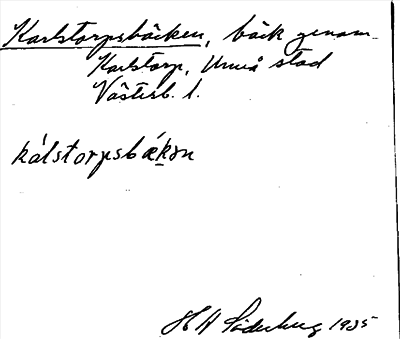 Karlstorpsbäcken, bäck genom
Karlstorp, Umeå stad
Västerb. l.
kálstorpsbækən
H H Söderberg 1935